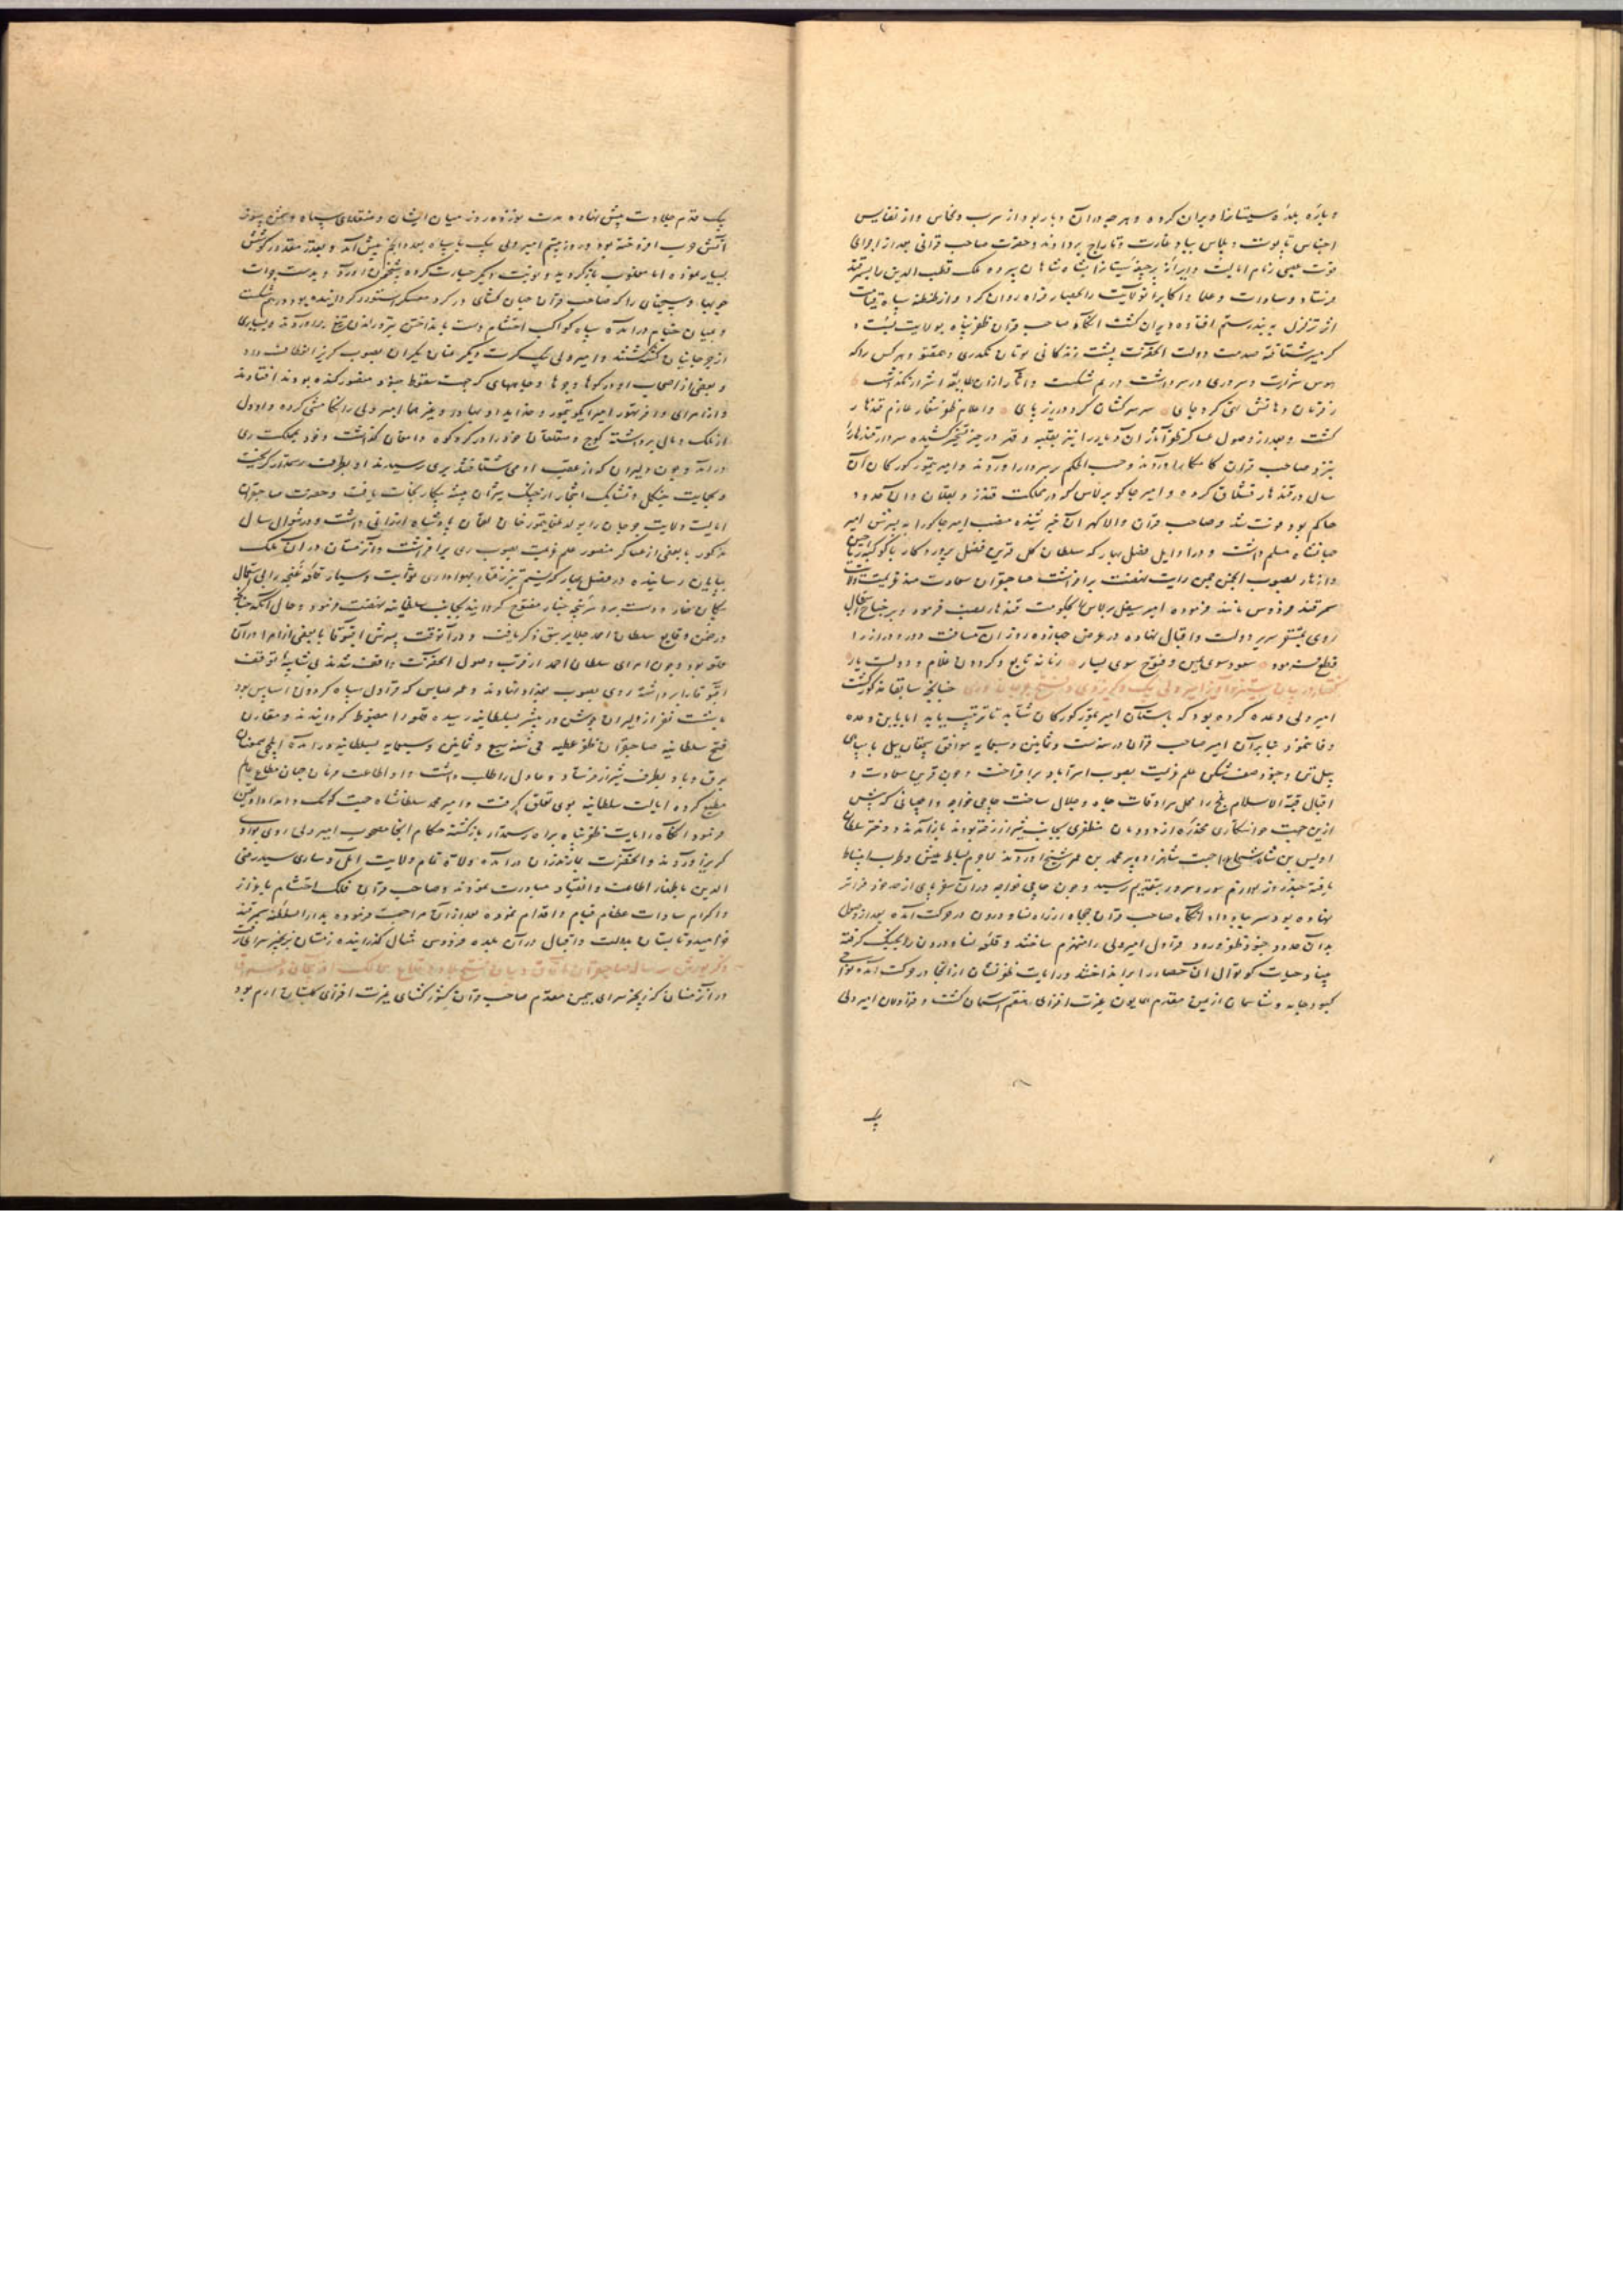 و باره بلده سیستانرا ویران کرده و هر چه در آن دیار بود از سرب و نحاس و از نفایس
اجناس تا پوست و پلاس بباد غارت و تاراج بردادند و حضرت صاحب قرانی بعد از اجرای
زمام ایالت شاه شاهان سپرده ملک قطب الدین را بسمرقند
فرستاد و سادات و علما و اکابر آنولایت را بحصار فراه روان کرد و از طنطنه سپاه قیامت
اثر تزلزل به بند رستم افتاده ویران گشت آنگاه صاحب قران ظفر پناه بولایت بست و
گرمسیر شتافته
هوس شرارت و سروری در سر داشت در هم شکست و آثار از آن طایفه اشرار نگذاشت
سر سرکشان کرد در زیر پای و اعلام ظفر شعار عازم قندهار
گشت و بعد از وصول عساکر ظفر آثار آن دیار را نیز بغلبه و قهر در حیز تسخیر کشیده سردار قندهار را
بنزد صاحب قران کامکار آوردند و حسب الحکم بر سر دار آوردند و امیر تیمور گورکان آن
سال در قندهار قشلاق کرده و امیر جاکو برلاس که در مملکت قندز و بقلان و آن حدود
حاکم بود فوت شد و صاحب قران والا گهر آن خبر شنیده منصب امیر جاکو را به پسرش امیر
جهانشاه مسلم داشت و در اوایل فصل بهار که سلطان گل قرین فضل پروردگار با کوکبه ریاحین
و ازهار بصوب انجمن چمن رایت نهضت برافراشت صاحبقران سعادتمند عزیمت
سمرقند فردوس مانند فرموده امیر سیفل برلاس را بحکومت قندهار نصب فرمود و بر جناح استعجال
روی بمستقر سریر دولت و اقبال نهاده در عرض چهارده روز آن مسافت دور و دراز را
قطع فرمود سعود سوی یمین و فتوح سوی یسار زمانه تابع و گردون غلام و دولت یار
گفتار در بیان ستیز و آویز امیر ولی چنانچه سابقا مذکور گشت
امیر ولی وعده کرده بود که باستان امیر تیمور گورکان شتابد تا تربیت یابد اما باین وعده
وفا ننمود بنابر آن امیر صاحب قران در سنه ست و ثمانین و سبعمایه موافق سچقان ییل با سپاهی
علم عزیمت بصوب استرآباد برافراخت و چون قرین سعادت و
اقبال قبة الاسلام بلخ را محل سرادقات جاه و جلال ساخت حاجی خواجه و اجیانی که پیش
ازین جهت خواستگاری مخدره از دودمان مظفری بجانب شیراز رفته بودند باز آمدند و دختر سلطان
اویس بن شاه شجاع را جهت شاهزاده پیر محمد بن عمر شیخ آوردند لاجرم بساط عیش و طرب انبساط
یافته چند روز لوازم سور و سرور بتقدیم رسید و چون حاجی خواجه در آن سفر پای از حد خود فراتر
نهاده بود سر بباد داد آنگاه صاحب قران جمجاه از راه نسا و درون در حرکت آمده بعد از وصول
بدان حدود جنود ظفر ورود قراول امیر ولی را منهزم ساختند و قلعه نسا و درون را بجنگ گرفته
بنیاد حیات کوتوال آن حصار را برانداختند و رایات ظفر نشان از آنجا در حرکت آمده نواحی
کبود جامه و شاسمان از یمن مقدم همایون عزت افزای هفتم آسمان گشت و قراولان امیر ولی
یک
یک قدم جلادت پیش نهاده مدت نوزده روز میان ایشان و منقلای سپاه دشمن سوز
آتش حرب افروخته بود و در روز بیستم امیر ولی یک با سپاه بعدد انجم پیش آمد و بقدر مقدور کوشش
بسیار نموده اما مغلوب بازگردید و نوبت دیگر جسارت کرده شبخون آورد و بدست
چوبها و سیخها را که صاحب قران جهان گشای در گرد معسکر استوار گردانیده بود در هم شکست
و بمیان خیام درآمده سپاه کواکب احتشام دست بانداختن تیر و راندن تیغ برآوردند و بسیاری
از جرجانیان کشته گشتند و امیر ولی یک کرت دیگر عنان یکران بصوب گریز انعطاف داد
و بعضی از اصحاب او در گوها و جوها و چاههای که جهت سقوط جنود منصور کنده بودند افتادند
و از امرای وافر تهور امیر ایکو تیمور و خدایداد بهادر و غیرهما امیر ولی را تکامشی کرده و او دل
از ملک و مال برداشته کوچ و متعلقان خود را در گرد کوه دامغان گذاشت و خود بمملکت ری
درآمد و چون دلیران که از عقب او می شتافتند بری رسیدند او بطرف رستمدار گریخت
و بحمایت جنگل و تشابک اشجار از چنگ شیران بیشه پیکار نجات یافت و حضرت صاحبقران
ایالت ولایت جرجان را بولد طغاتیمور خان لقمان پادشاه ارزانی داشت و در شوال سال
مذکور با بعضی از عساکر منصور علم عزیمت بصوب ری برافراشت و آن زمستان در آن ملک
بپایان رسانیده در فصل بهار که نسیم تیز رفتار بهواداری قلعه غنچه را بی استعجال
پیکان خار و دست برد سرپنجه چنار مفتوح گردانید بجانب سلطانیه نهضت فرمود و حال آنکه چنانچه
در ضمن وقایع سلطان احمد جلایر سبق ذکر یافت در آنوقت پسرش اقبوقا با بعضی از امرا در آن
قلعه بود و چون امرای سلطان احمد از قرب وصول آنحضرت واقف شدند بی شایبه توقف
اقبوقا را برداشته روی بصوب بغداد نهادند و عمر عباس که قراول سپاه گردون اساس بود
با شصت نفر از دلیران جوشن در پیشتر بسلطانیه رسیده قلعه را مضبوط گردانیدند و مقارن
فتح سلطانیه صاحبقران ظفر عطیه فی سنه سبع و ثمانین و سبعمایه بسلطانیه درآمده ایلچی بمعنان
برق و باد بطرف شیراز فرستاد و عادل را طلب داشت و او اطاعت فرمان جهان مطاع
مطیع کرده ایالت سلطانیه بوی تعلق گرفت و امیر محمد سلطانشاه جهت کومک و امداد او تعیین
فرمود آنگاه رایات ظفر پناه براه رستمدار بازگشته حکام آنجا مصحوب امیر ولی روی بوادی
گریز آوردند و آنحضرت بمازندران درآمده ولاة تمام ولایت آمل و ساری سید رضی
الدین باظهار اطاعت و انقیاد مبادرت نمودند و صاحب قران فلک احتشام باعزاز
و اکرام سادات عظام قیام و اقدام نموده بعد از آن مراجعت فرموده بدار السلطنه سمرقند
خرامید و تابستان بدولت و اقبال در آن بلده فردوس مثال گذرانیده زمستان بزنجیر سرای رفت
ذکر یورش سه ساله صاحبقران آفاق و بیان فتح بلاد و قلاع ممالک آذربیجان و
در آن زمستان که زنجیر سرای بیمن مقدم صاحب قران کشور گشای غیرت افزای گلستان ارم بود